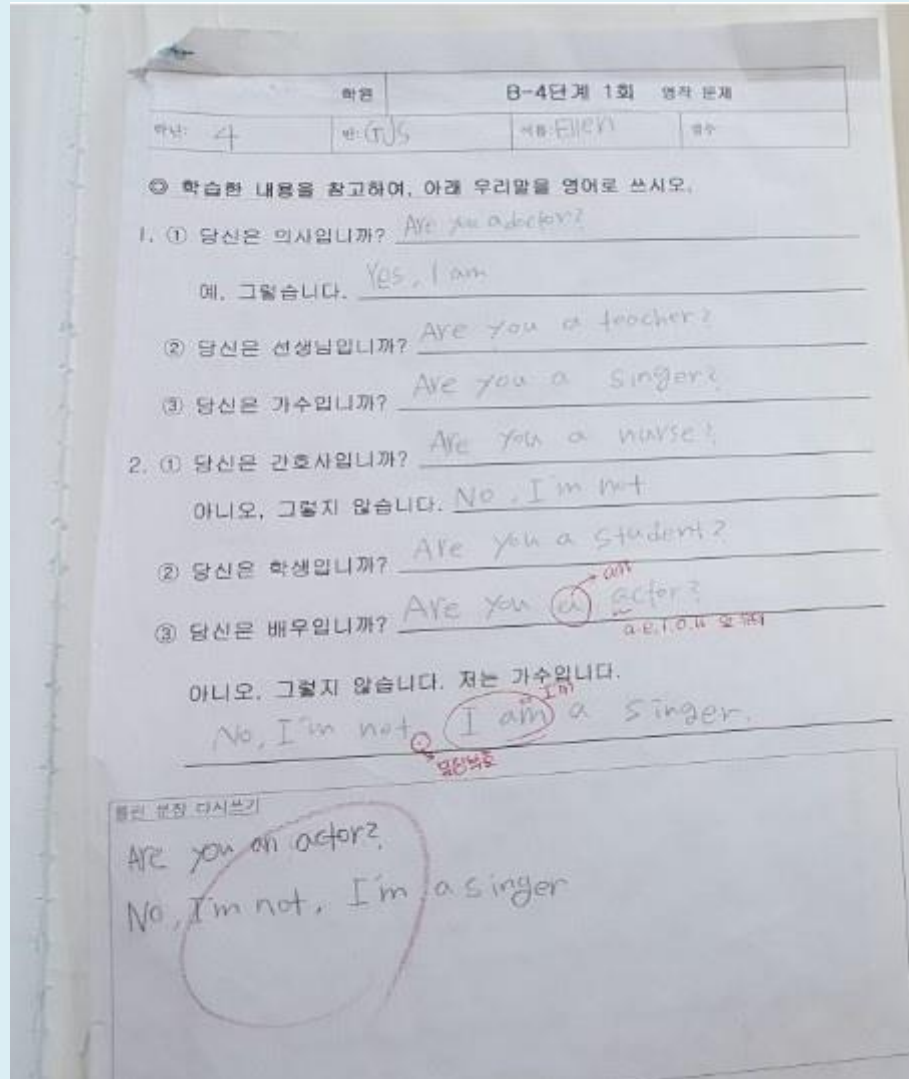 학원 B-4단계 1회 영작 문제
학년: 4 반: GJS 이름: Ellen 점수
◎ 학습한 내용을 참고하여, 아래 우리말을 영어로 쓰시오.
1. ① 당신은 의사입니까? Are you a doctor?
예, 그렇습니다. Yes, I am
② 당신은 선생님입니까? Are you a teacher?
③ 당신은 가수입니까? Are you a singer?
2. ① 당신은 간호사입니까? Are you a nurse?
아니오, 그렇지 않습니다. No, I'm not
② 당신은 학생입니까? Are you a student?
an
③ 당신은 배우입니까? Are you a actor?
a.e.i.o.u
아니오, 그렇지 않습니다. 저는 가수입니다.
I'm
No, I'm not. I am a singer.
문장부호
틀린 문장 다시쓰기
Are you an actor?
No, I'm not, I'm a singer